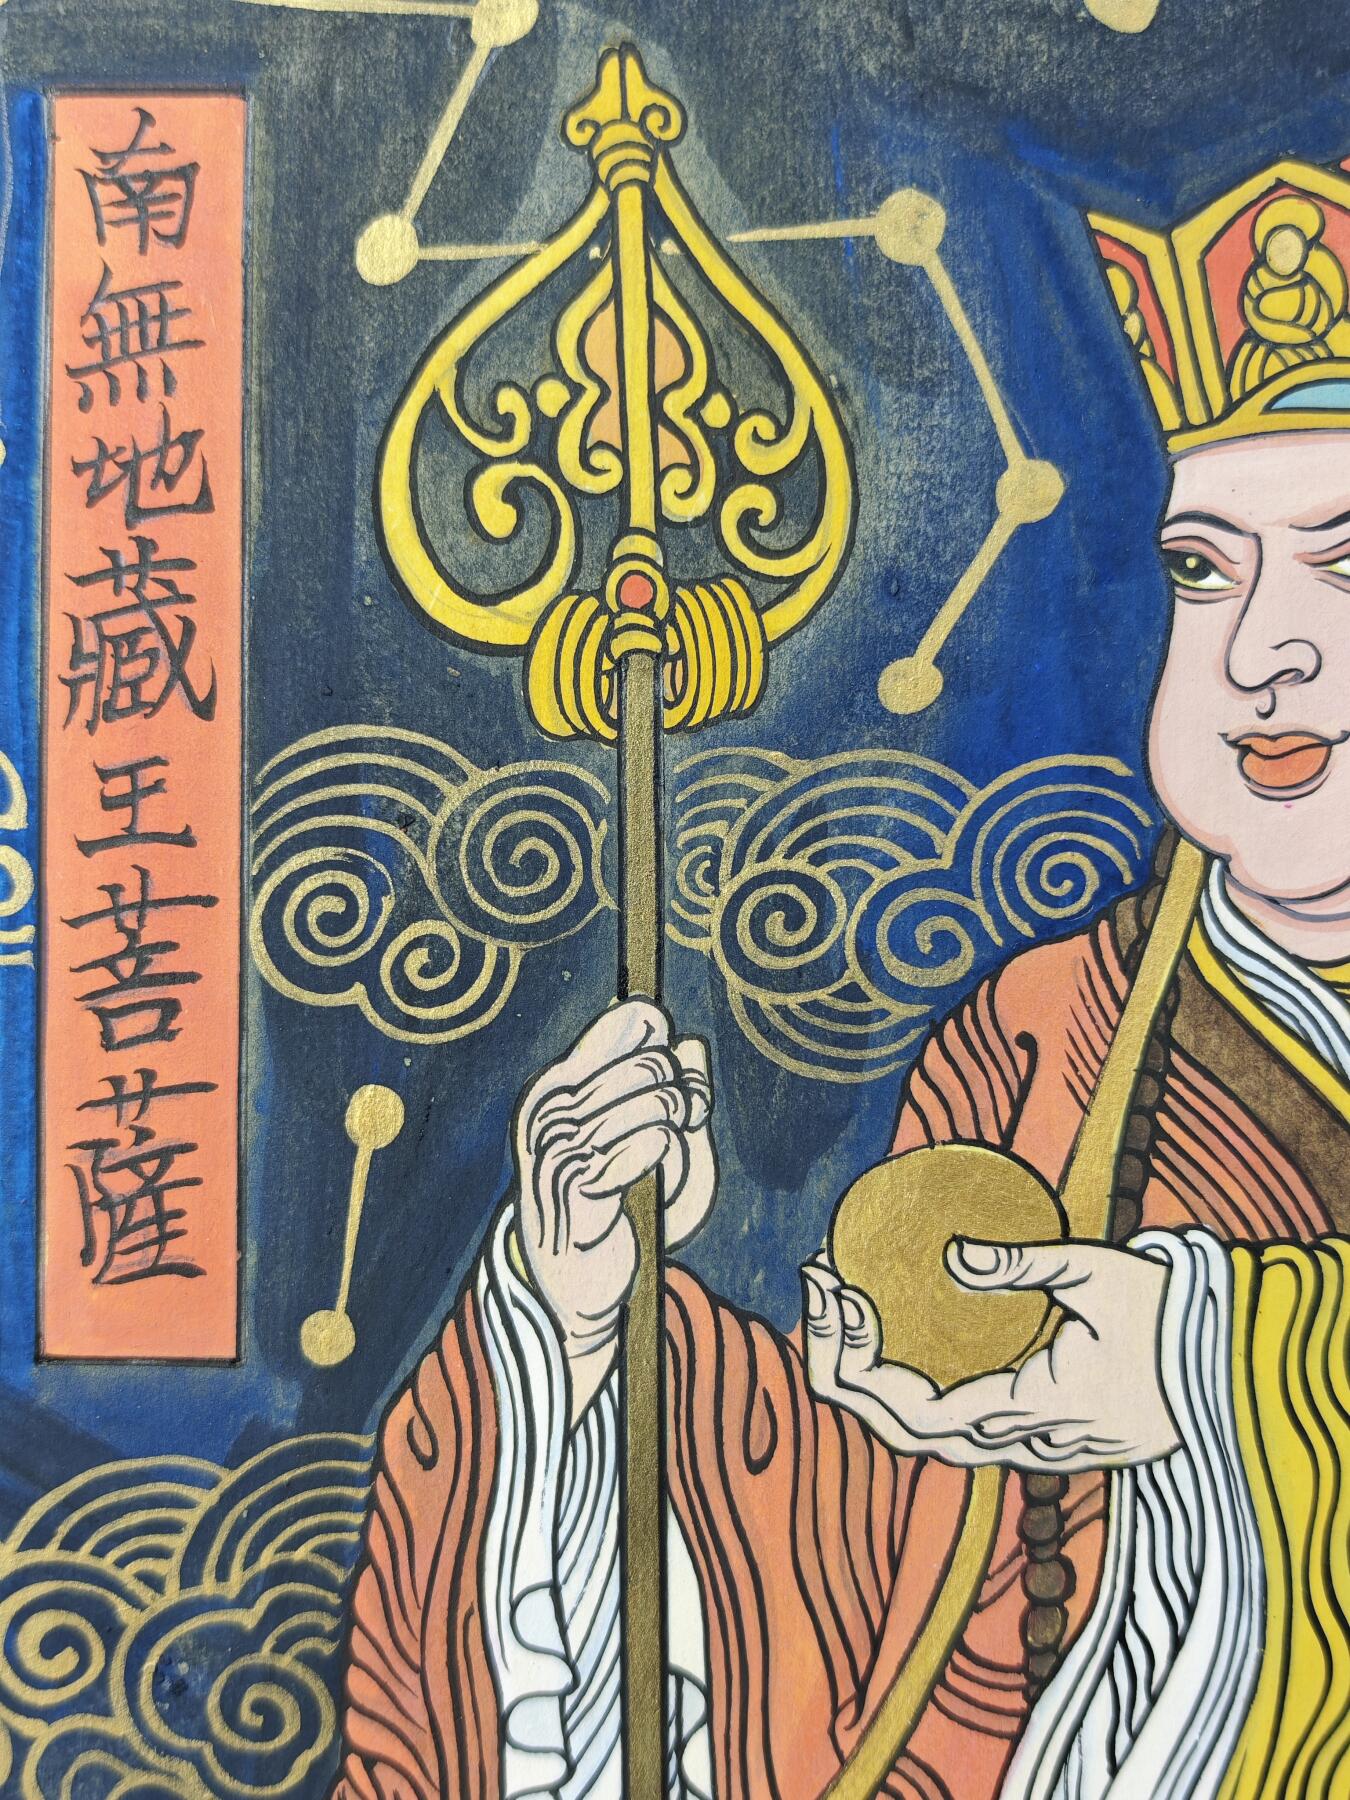 南無地藏王菩薩